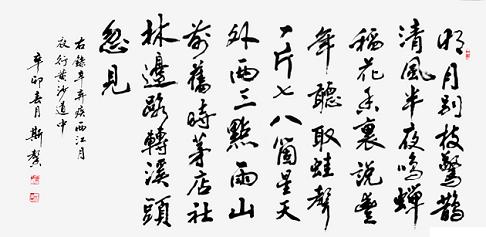 明月别枝驚鵲
清風半夜鳴蟬
稻花香裏說豐
年聽取蛙聲
一片七八箇星天
外两三點雨山
前舊時茅店社
林邊路轉溪頭
忽見
右錄辛弃疾西江月
夜行黄沙道中
辛卯春月 斯